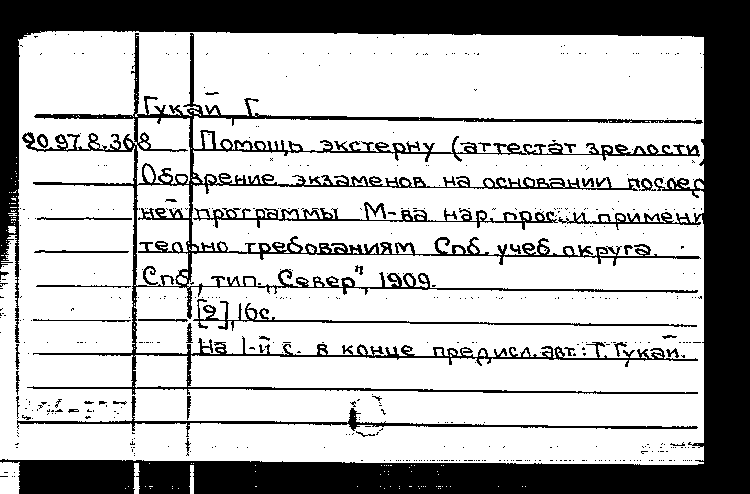 Гукай, Г.
20.97.8.368 Помощь экстерну (аттестат зрелости)
Обозрение экзаменов на основании послед
ней программы М-ва нар. прос. и примени
тельно требованиям Спб. учеб. округа.
Спб., тип. „Север", 1909.
[2], 16с.
На 1-й с. в конце предисл. авт.: Г. Гукай.